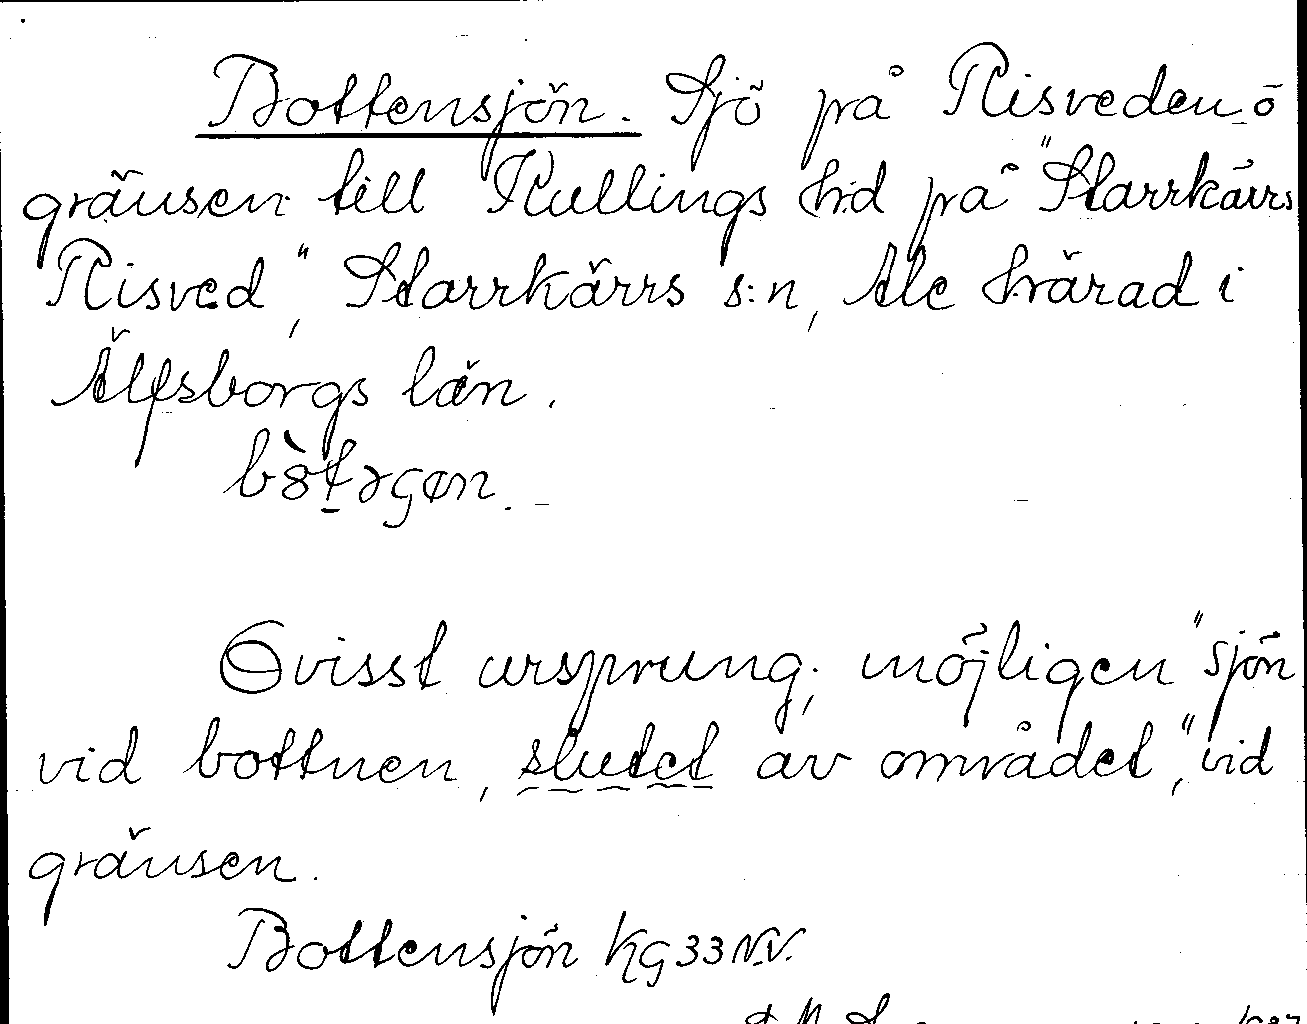 Bottensjön. Sjö på Risveden ö
gränsen till Kullings hd på "Starrkärrs
Risved", Starrkärrs s:n, Ale härad i
Älfsborgs län.
Ovisst ursprung; möjligen "sjön
vid bottnen, slutet av området", vid
gränsen.
Bottensjön KG 33 N.V.